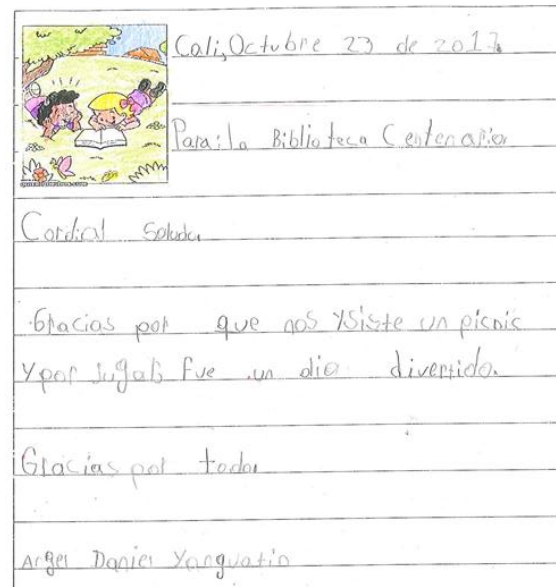 Cali, Octubre 23 de 2017.
Para: la Biblioteca Centenario
Cordial Saludo
Gracias por que nos ysiste un picnic
y por jugar, fue un dia divertido.
Gracias por todo.
Angel Daniel Yanguatin